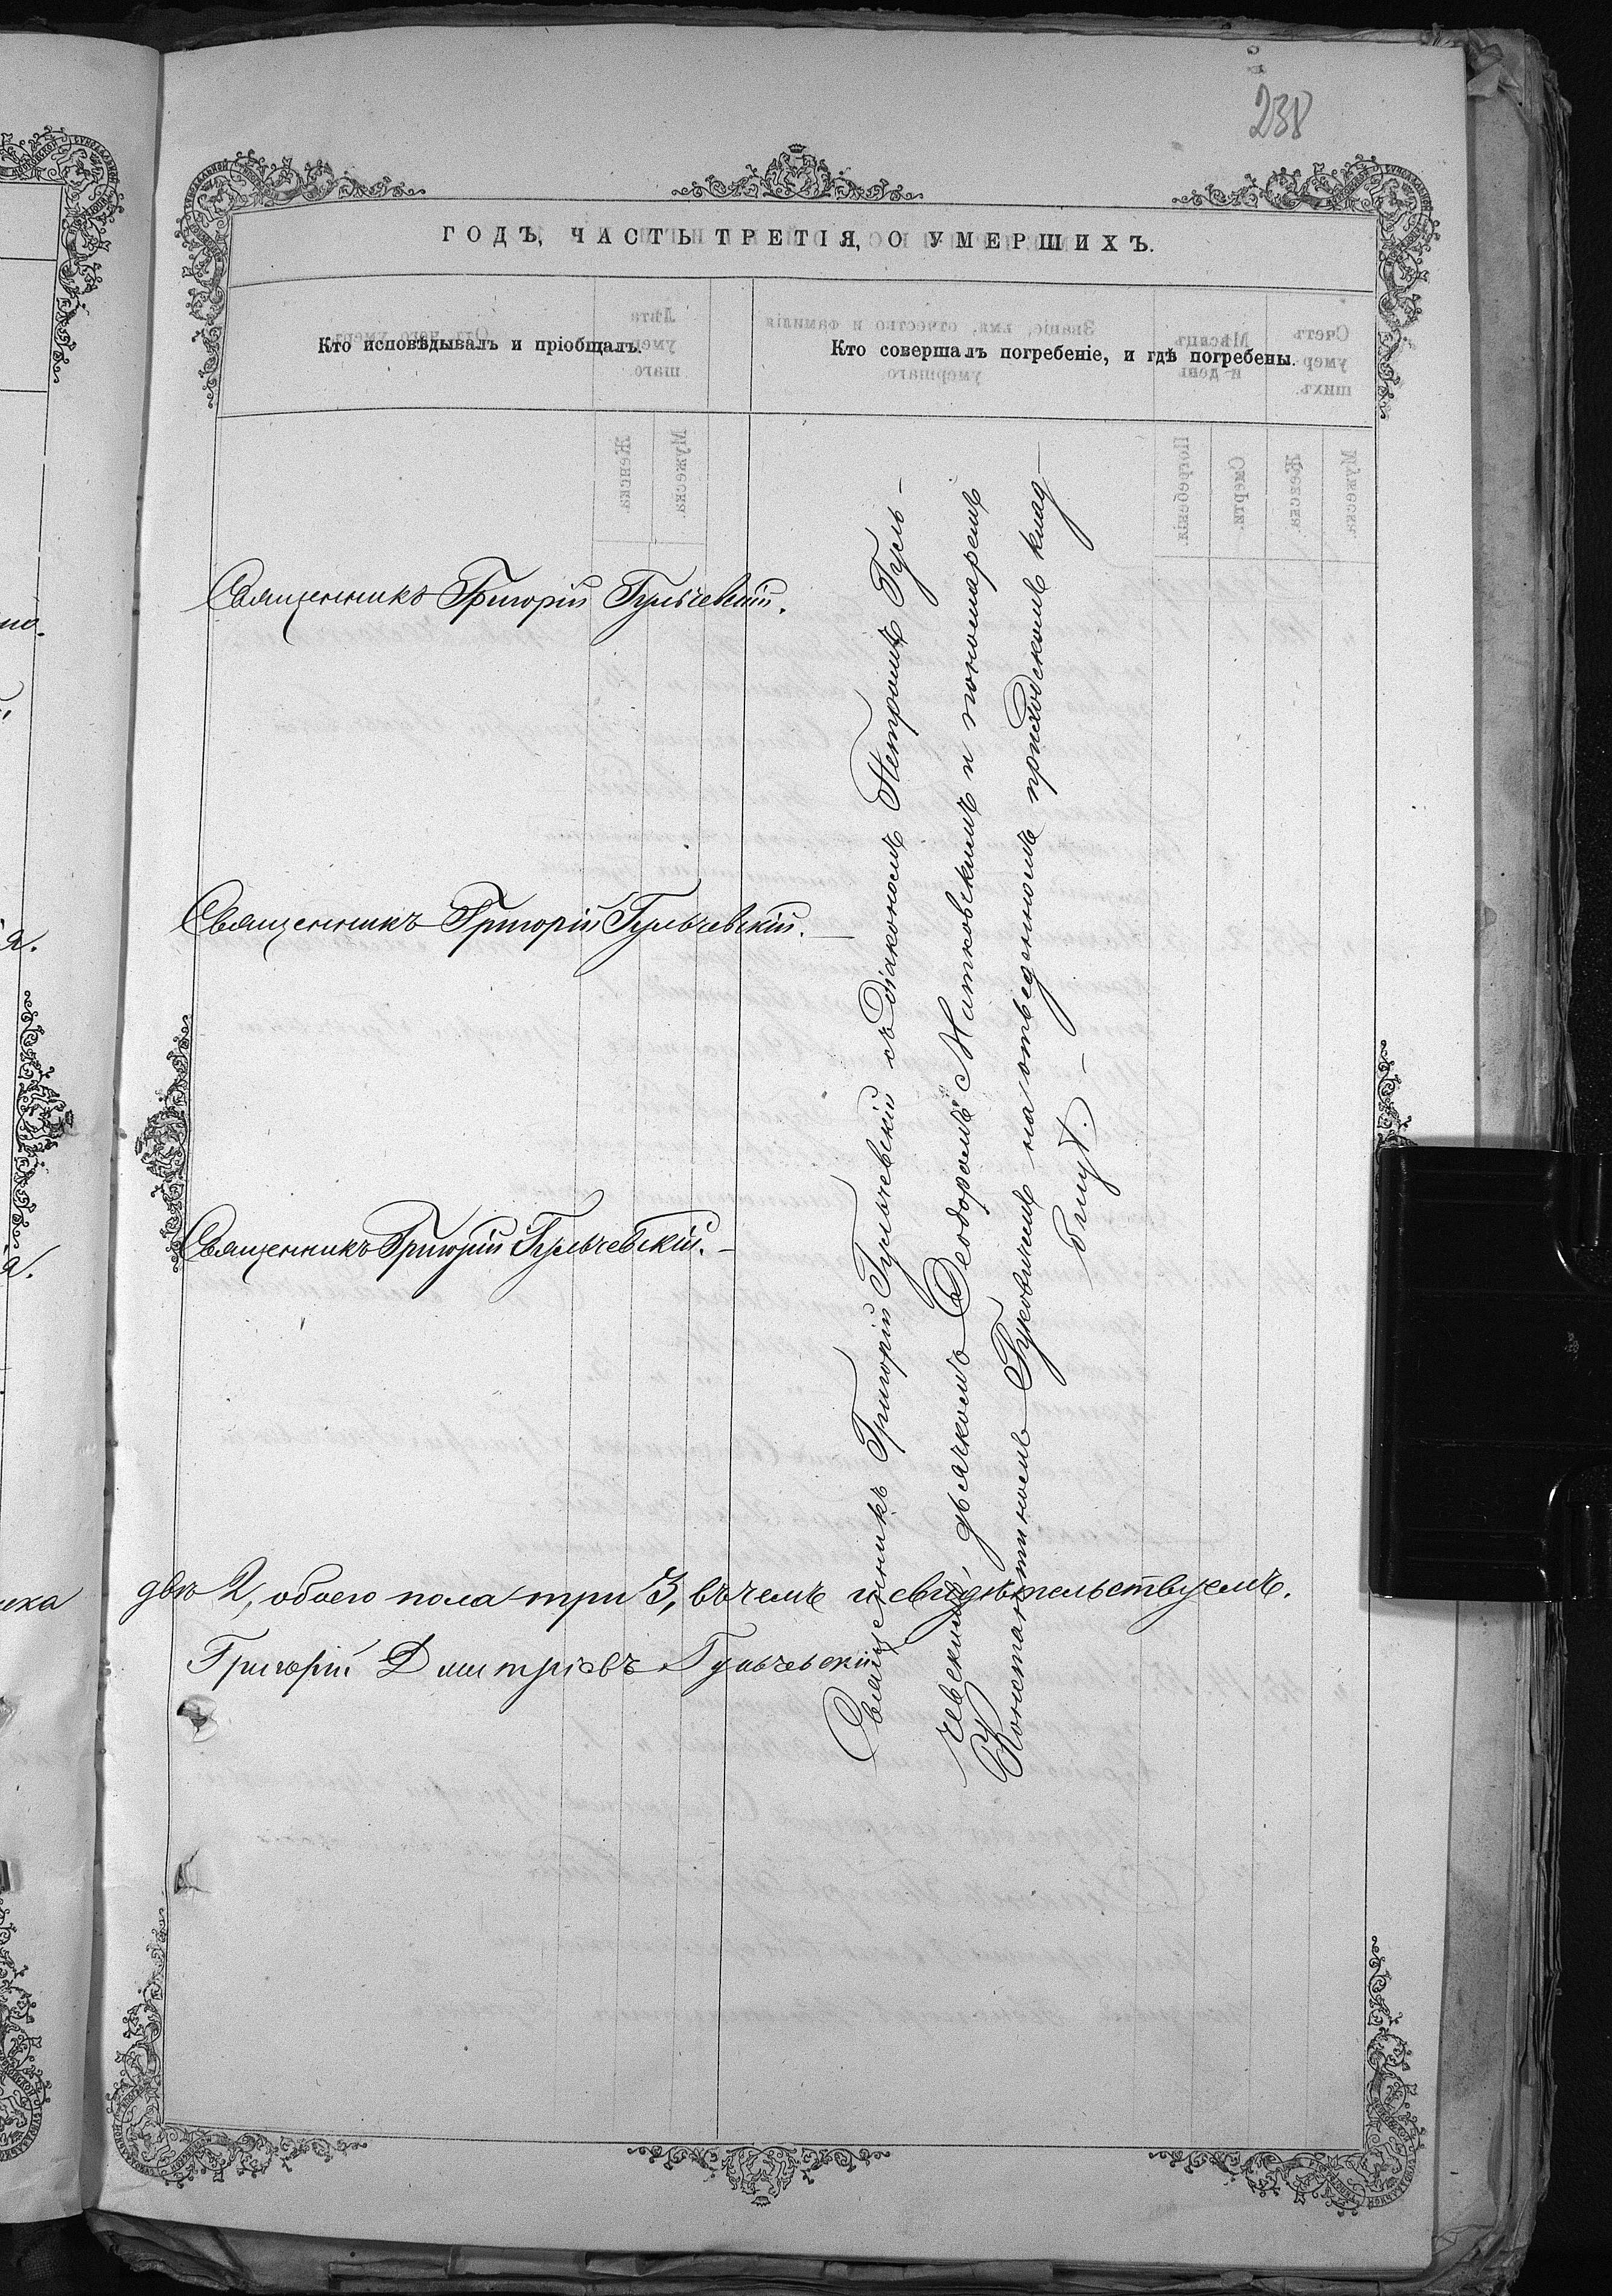 238
ГОДЪ, ЧАСТЬ ТРЕТІЯ, О УМЕРШИХЪ.
Кто исповѣдывалъ и пріобщалъ.
Кто совершалъ погребеніе, и гдѣ погребены.
Священникъ Григорій Гульчевскій.
Священникъ Григорій Гульчевскій. —
Священникъ Григорій Гульчевскій. —
Священникъ Григорій Гульчевскій съ діакономъ Петромъ Гуль-
чевскимъ, дьячкомъ Ѳеодоромъ Матковскимъ и пономаремъ
Константиномъ Гуковичемъ на отведенномъ приходскомъ клад-
бищѣ. —
двѣ 2, обоего пола три 3, въ чемъ и свидѣтельствуемъ.
Григорій Димитріевъ Гульчевскій